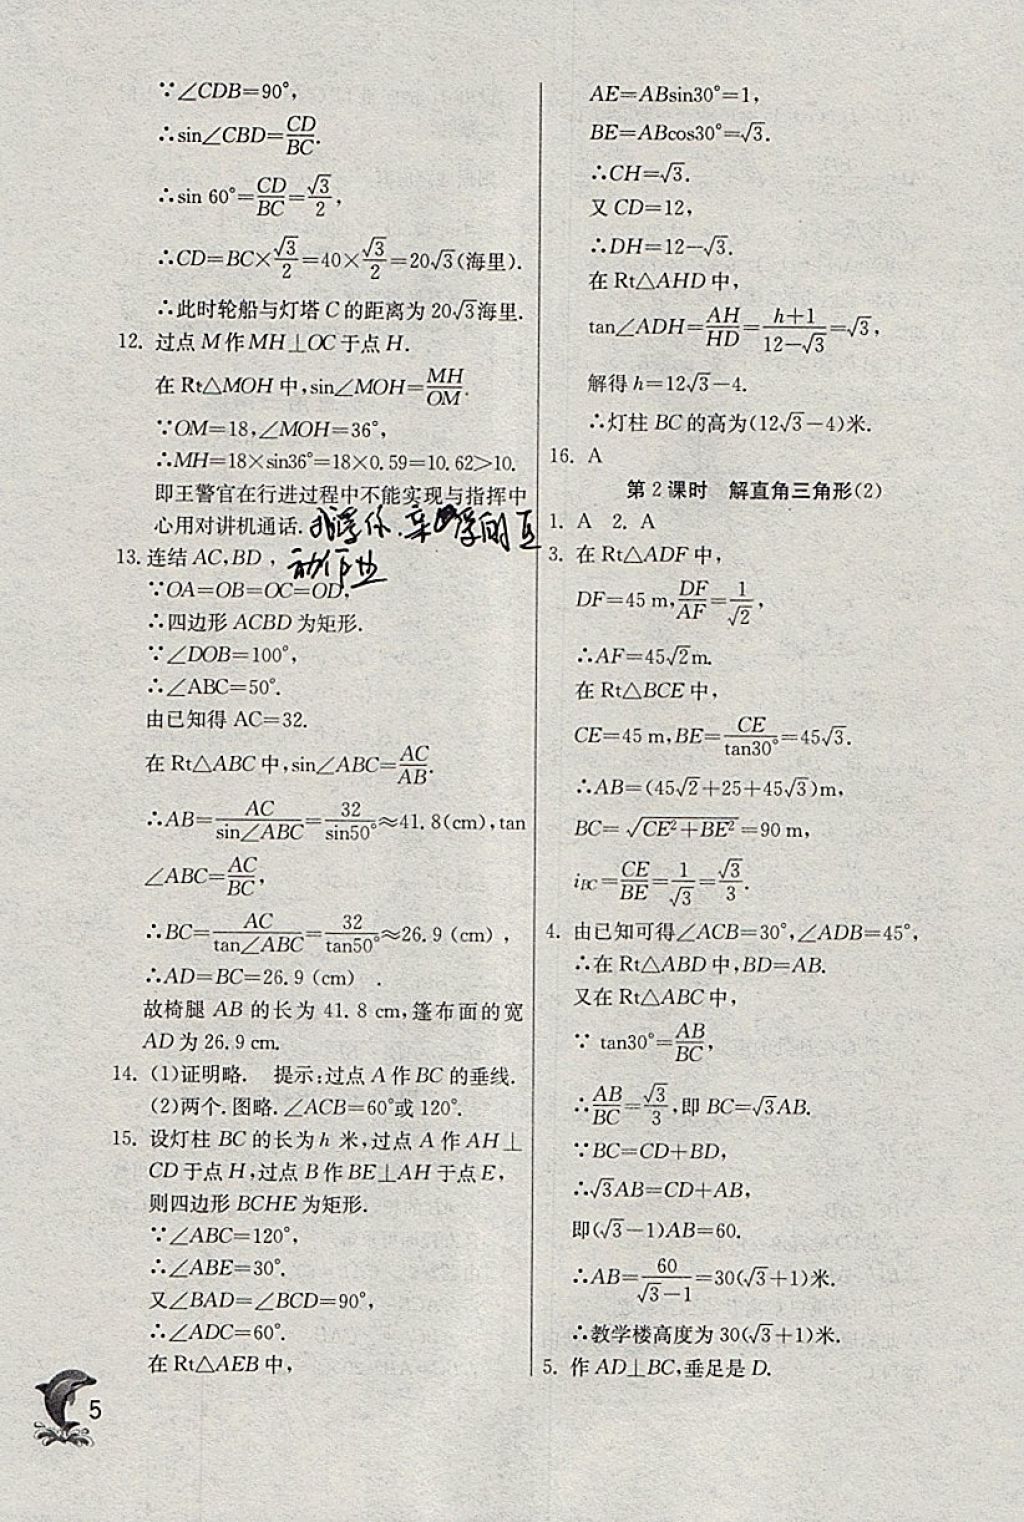 ∵∠CDB=90°,
∴sin∠CBD=CD/BC.
∴sin 60°=CD/BC=√3/2,
∴CD=BC×√3/2=40×√3/2=20√3(海里).
∴此时轮船与灯塔 C 的距离为 20√3海里.
12. 过点 M 作 MH⊥OC 于点 H.
在 Rt△MOH 中,sin∠MOH=MH/OM.
∵OM=18,∠MOH=36°,
∴MH=18×sin36°=18×0.59=10.62>10.
即王警官在行进过程中不能实现与指挥中
心用对讲机通话.
13. 连结 AC,BD ,
动作业
∵OA=OB=OC=OD,
∴四边形 ACBD 为矩形.
∵∠DOB=100°,
∴∠ABC=50°.
由已知得 AC=32.
在 Rt△ABC 中,sin∠ABC=AC/AB.
∴AB=AC/sin∠ABC=32/sin50°≈41.8(cm),tan
∠ABC=AC/BC,
∴BC=AC/tan∠ABC=32/tan50°≈26.9 (cm) ,
∴AD=BC=26.9 (cm) .
故椅腿 AB 的长为 41.8 cm,篷布面的宽
AD 为 26.9 cm.
14. (1)证明略. 提示:过点 A 作 BC 的垂线.
(2)两个.图略.∠ACB=60°或 120°.
15. 设灯柱 BC 的长为 h 米,过点 A 作 AH⊥
CD 于点 H,过点 B 作 BE⊥AH 于点 E,
则四边形 BCHE 为矩形.
∵∠ABC=120°,
∴∠ABE=30°.
又∠BAD=∠BCD=90°,
∴∠ADC=60°.
在 Rt△AEB 中,
AE=ABsin30°=1,
BE=ABcos30°=√3.
∴CH=√3.
又 CD=12,
∴DH=12-√3.
在 Rt△AHD 中,
tan∠ADH=AH/HD=(h+1)/(12-√3)=√3,
解得 h=12√3-4.
∴灯柱 BC 的高为(12√3-4)米.
16. A
第 2 课时 解直角三角形(2)
1. A 2. A
3. 在 Rt△ADF 中,
DF=45 m,DF/AF=1/√2,
∴AF=45√2m.
在 Rt△BCE 中,
CE=45 m,BE=CE/tan30°=45√3.
∴AB=(45√2+25+45√3)m,
BC=√(CE²+BE²)=90 m,
i_BC=CE/BE=1/√3=√3/3.
4. 由已知可得∠ACB=30°,∠ADB=45°,
∴在 Rt△ABD 中,BD=AB.
又在 Rt△ABC 中,
∵ tan30°=AB/BC,
∴AB/BC=√3/3,即 BC=√3AB.
∵BC=CD+BD,
∴√3AB=CD+AB,
即(√3-1)AB=60.
∴AB=60/(√3-1)=30(√3+1)米.
∴教学楼高度为 30(√3+1)米.
5. 作 AD⊥BC,垂足是 D.
5